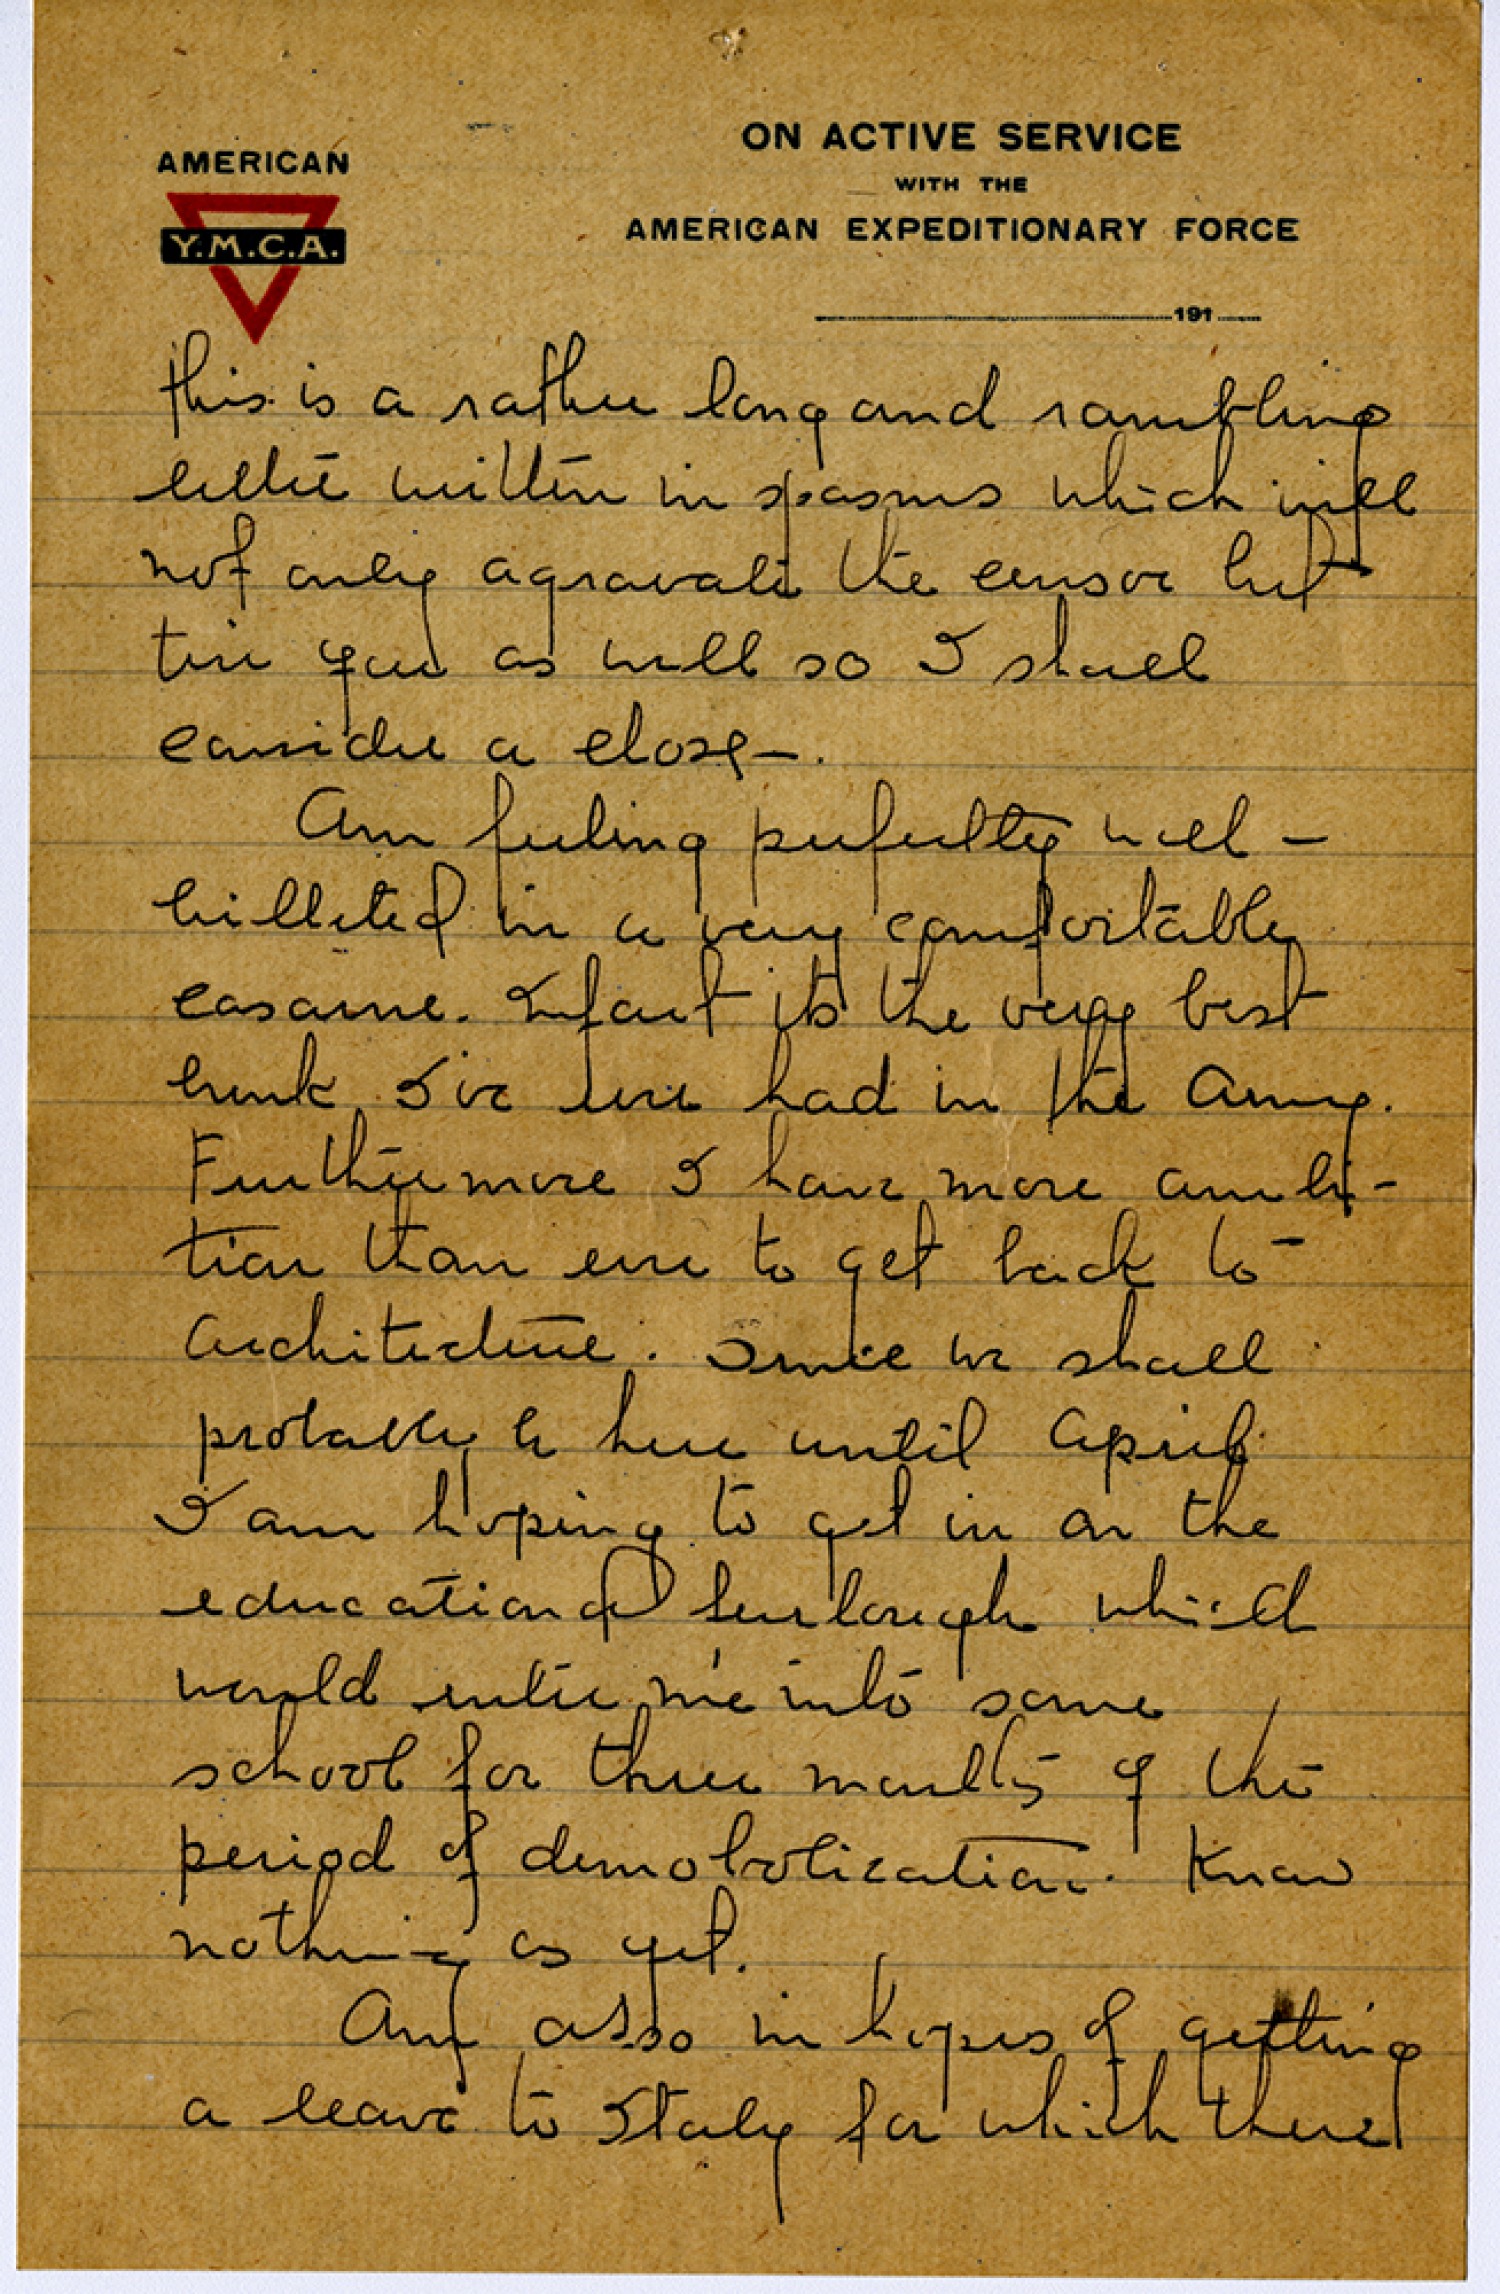 AMERICAN
Y.M.C.A.
ON ACTIVE SERVICE
WITH THE
AMERICAN EXPEDITIONARY FORCE
191
this is a rather long and rambling
letter written in spasms which will
not only agravate the censor but
tire you as well so I shall
consider a close—.
Am feeling perfectly well —
billeted in a very comfortable
casarne. Infact its the very best
bunk I've ever had in the Army.
Furthermore I have more ambi-
tion than ever to get back to
Architecture. Since we shall
probably be here until April
I am hoping to get in on the
educational furlough which
would enter me into some
school for three months of the
period of demobolication. Know
nothing as yet.
Am also in hopes of getting
a leave to Italy for which there